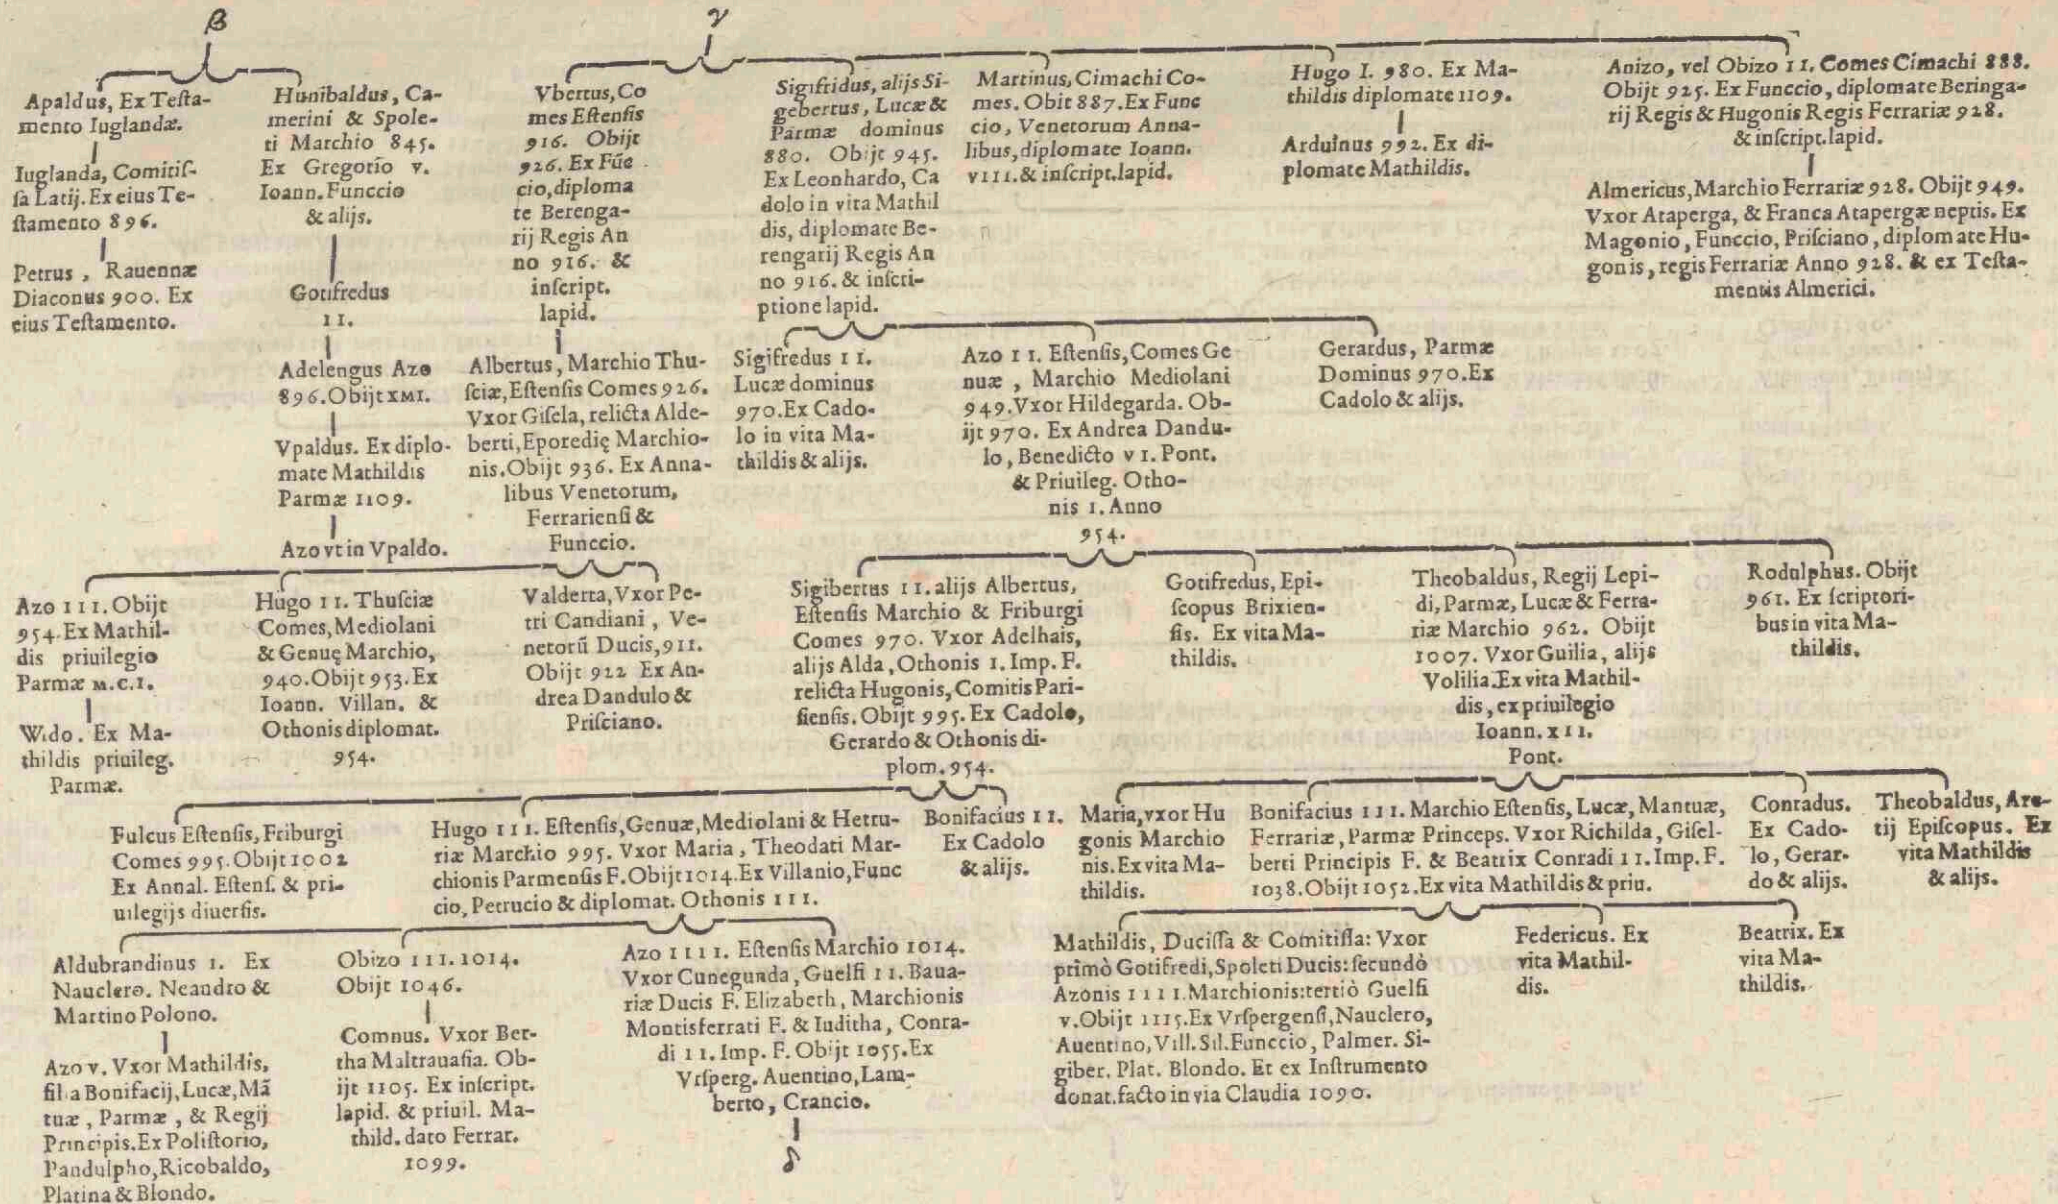 β
γ
Apaldus, Ex Testa-
mento Iuglandæ.
Iuglanda, Comitis-
sa Latij. Ex eius Te-
stamento 896.
Petrus, Rauennæ
Diaconus 900. Ex
eius Testamento.
Hunibaldus, Ca-
merini & Spole-
ti Marchio 845.
Ex Gregorio v.
Ioann. Funccio
& alijs.
Gotifredus
II.
Adelengus Azo
896. Obijt XMI.
Vpaldus. Ex diplo-
mate Mathildis
Parmæ 1109.
Azo vt in Vpaldo.
Vbertus, Co
mes Estensis
916. Obijt
926. Ex Fũc
cio, diploma
te Berenga-
rij Regis An
no 916. &
inscript.
lapid.
Albertus, Marchio Thu-
sciæ, Estensis Comes 926.
Vxor Gisela, relicta Alde-
berti, Eporedię Marchio-
nis. Obijt 936. Ex Anna-
libus Venetorum,
Ferrariensi &
Funccio.
Sigifridus, alijs Si-
gebertus, Lucæ &
Parmæ dominus
880. Obijt 945.
Ex Leonhardo, Ca
dolo in vita Mathil
dis, diplomate Be-
rengarij Regis An
no 916. & inscri-
ptione lapid.
Martinus, Cimachi Co-
mes. Obit 887. Ex Func
cio, Venetorum Anna-
libus, diplomate Ioann.
VIII. & inscript. lapid.
Hugo I. 980. Ex Ma-
thildis diplomate 1109.
Arduinus 992. Ex di-
plomate Mathildis.
Anizo, vel Obizo II. Comes Cimachi 888.
Obijt 925. Ex Funccio, diplomate Beringa-
rij Regis & Hugonis Regis Ferrariæ 928.
& inscript. lapid.
Almericus, Marchio Ferrariæ 928. Obijt 949.
Vxor Ataperga, & Franca Atapergæ neptis. Ex
Magonio, Funccio, Prisciano, diplomate Hu-
gonis, regis Ferrariæ Anno 928. & ex Testa-
mentis Almerici.
Sigifredus II.
Lucæ dominus
970. Ex Cado-
lo in vita Ma-
thildis & alijs.
Azo II. Estensis, Comes Ge
nuæ, Marchio Mediolani
949. Vxor Hildegarda. Ob-
ijt 970. Ex Andrea Dandu-
lo, Benedicto VI. Pont.
& Priuileg. Otho-
nis I. Anno
954.
Gerardus, Parmæ
Dominus 970. Ex
Cadolo & alijs.
Azo III. Obijt
954. Ex Mathil-
dis priuilegio
Parmæ M.C.I.
Wido. Ex Ma-
thildis priuileg.
Parmæ.
Hugo II. Thusciæ
Comes, Mediolani
& Genuę Marchio,
940. Obijt 953. Ex
Ioann. Villan. &
Othonis diplomat.
954.
Valderta, Vxor Pe-
tri Candiani, Ve-
netorũ Ducis, 911.
Obijt 922 Ex An-
drea Dandulo &
Prisciano.
Sigibertus II. alijs Albertus,
Estensis Marchio & Friburgi
Comes 970. Vxor Adelhais,
alijs Alda, Othonis I. Imp. F.
relicta Hugonis, Comitis Pari-
siensis. Obijt 995. Ex Cadolo,
Gerardo & Othonis di-
plom. 954.
Gotifredus, Epi-
scopus Brixien-
sis. Ex vita Ma-
thildis.
Theobaldus, Regij Lepi-
di, Parmæ, Lucæ & Ferra-
riæ Marchio 962. Obijt
1007. Vxor Guilia, alijs
Volilia. Ex vita Mathil-
dis, ex priuilegio
Ioann. XII.
Pont.
Rodulphus. Obijt
961. Ex scriptori-
bus in vita Ma-
thildis.
Fulcus Estensis, Friburgi
Comes 995. Obijt 1002
Ex Annal. Estens. & pri-
uilegijs diuersis.
Hugo III. Estensis, Genuæ, Mediolani & Hetru-
riæ Marchio 995. Vxor Maria, Theodati Mar-
chionis Parmensis F. Obijt 1014. Ex Villanio, Func
cio, Petrucio & diplomat. Othonis III.
Bonifacius II.
Ex Cadolo
& alijs.
Maria, vxor Hu
gonis Marchio
nis. Ex vita Ma-
thildis.
Bonifacius III. Marchio Estensis, Lucæ, Mantuæ,
Ferrariæ, Parmæ Princeps. Vxor Richilda, Gisel-
berti Principis F. & Beatrix Conradi II. Imp. F.
1038. Obijt 1052. Ex vita Mathildis & priu.
Conradus.
Ex Cado-
lo, Gerar-
do & alijs.
Theobaldus, Are-
tij Episcopus. Ex
vita Mathildis
& alijs.
Aldubrandinus I. Ex
Nauclero. Neandro &
Martino Polono.
Azo v. Vxor Mathildis,
filia Bonifacij, Lucæ, Mã
tuæ, Parmæ, & Regij
Principis. Ex Polistorio,
Pandulpho, Ricobaldo,
Platina & Blondo.
Obizo III. 1014.
Obijt 1046.
Comnus. Vxor Ber-
tha Maltrauasia. Ob-
ijt 1105. Ex inscript.
lapid. & priuil. Ma-
thild. dato Ferrar.
1099.
Azo IIII. Estensis Marchio 1014.
Vxor Cunegunda, Guelfi II. Baua-
riæ Ducis F. Elizabeth, Marchionis
Montisferrati F. & Iuditha, Conra-
di II. Imp. F. Obijt 1055. Ex
Vrsperg. Auentino, Lam-
berto, Crancio.
δ
Mathildis, Ducissa & Comitissa: Vxor
primò Gotifredi, Spoleti Ducis: secundò
Azonis IIII. Marchionis: tertiò Guelfi
v. Obijt 1115. Ex Vrspergensi, Nauclero,
Auentino, Vill. Sil. Funccio, Palmer. Si-
giber. Plat. Blondo. Et ex Instrumento
donat. facto in via Claudia 1090.
Federicus. Ex
vita Mathil-
dis.
Beatrix. Ex
vita Ma-
thildis.